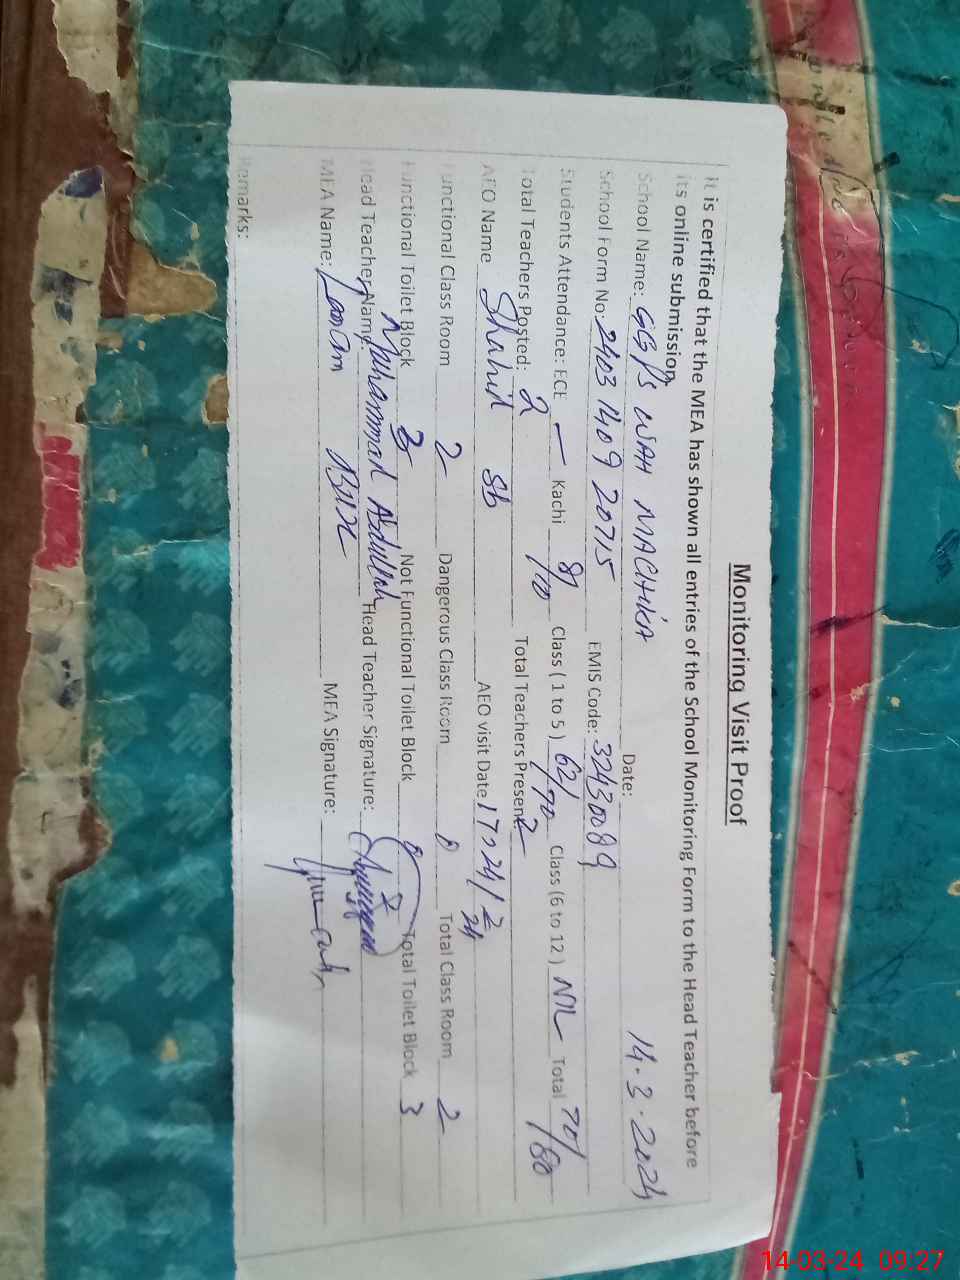 Monitoring Visit Proof
It is certified that the MEA has shown all entries of the School Monitoring Form to the Head Teacher before
its online submission.
School Name: GGPS WAH MACHIKA Date: 14.3.2024
School Form No: 2403 1409 20715 EMIS Code: 32430089
Students Attendance: ECE — Kachi 8/10 Class ( 1 to 5 ) 62/70 Class (6 to 12 ) NIL Total 70/80
Total Teachers Posted: 2 Total Teachers Present 2
AEO Name Shahid Sb AEO visit Date 17 24/2 24
Functional Class Room 2 Dangerous Class Room 0 Total Class Room 2
Functional Toilet Block 3 Not Functional Toilet Block 0 Total Toilet Block 3
Head Teacher Name: Muhammad Abdullah Head Teacher Signature:
MEA Name: Bux MEA Signature:
Remarks:
14-03-24 09:27